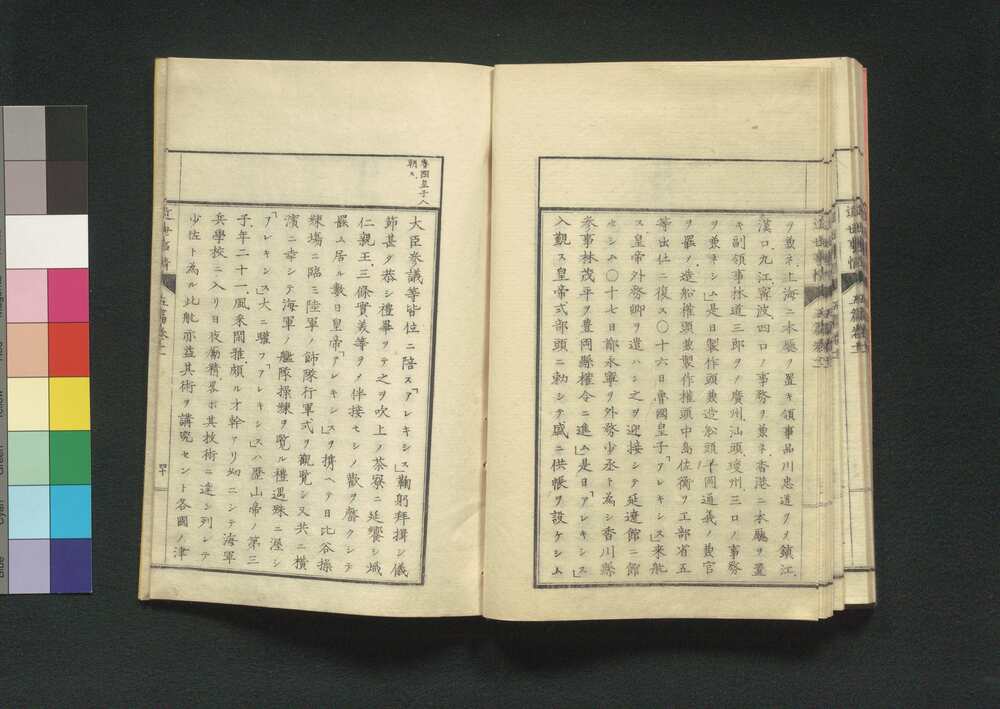 ヲ兼ネ上海ニ本廳ヲ置キ領事品川忠道ヲメ鎮江
漢口九江寧波四口ノ事務ヲ兼ネ香港ニ本廳ヲ置
キ副領事林道三郎ヲメ廣州汕頭瓊州三口ノ事務
ヲ兼ネシム是日製作頭兼造舩頭平岡通義ノ兼官
ヲ罷メ造船權頭兼製作權頭中島佐衡ヲ工部省五
等出仕ニ復ス〇十六日魯國皇子「アレキシス」來舩
ス皇帝外務卿ヲ遣ハシ之ヲ迎接シテ延遼館ニ館
セシム〇十七日鄭永寧ヲ外務少丞ト為シ香川縣
参事林茂平ヲ豊岡縣權令ニ進ム是日「アレキシス」
入覲ス皇帝式部頭ニ勅シテ盛ニ供帳ヲ設ケシム
魯國皇子入
朝ス
大臣参議等皆位ニ陪ス「アレキシス」鞠躬拜揖シ儀
節甚タ恭シ禮畢ヲテ之ヲ吹上ノ茶寮ニ延饗シ熾
仁親王三條實美等ヲメ伴接セシメ歡ヲ罄クシテ
罷ム居ル數日皇帝「アレキシス」ヲ携ヘテ日比谷操
練場ニ臨ミ陸軍ノ飾隊行軍式ヲ觀覧シ又共ニ横
濱ニ幸シテ海軍ノ艦隊操練ヲ覧ル禮遇殊ニ渥シ
「アレキシス」大ニ驩フ「アレキシス」ハ歴山帝ノ第三
子年二十一風采閑雅頗ル才幹アリ幼ニシテ海軍
兵學校ニ入リ日夜勵精畧ホ其技術ニ達シ列シテ
少佐ト為ル此航亦益其術ヲ講究セント各國ノ津
近世事情
五篇巻十一
四十